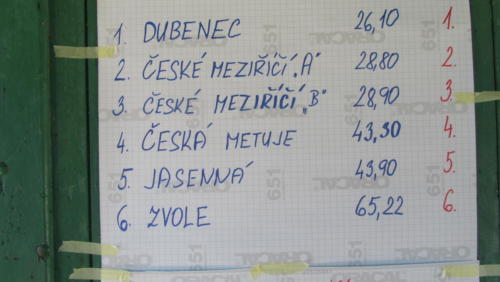 1. DUBENEC 26,10 1.
2. ČESKÉ MEZIŘÍČÍ "A" 28,80 2.
3. ČESKÉ MEZIŘÍČÍ "B" 28,90 3.
4. ČESKÁ METUJE 43,30 4.
5. JASENNÁ 43,90 5.
6. ZVOLE 65,22 6.